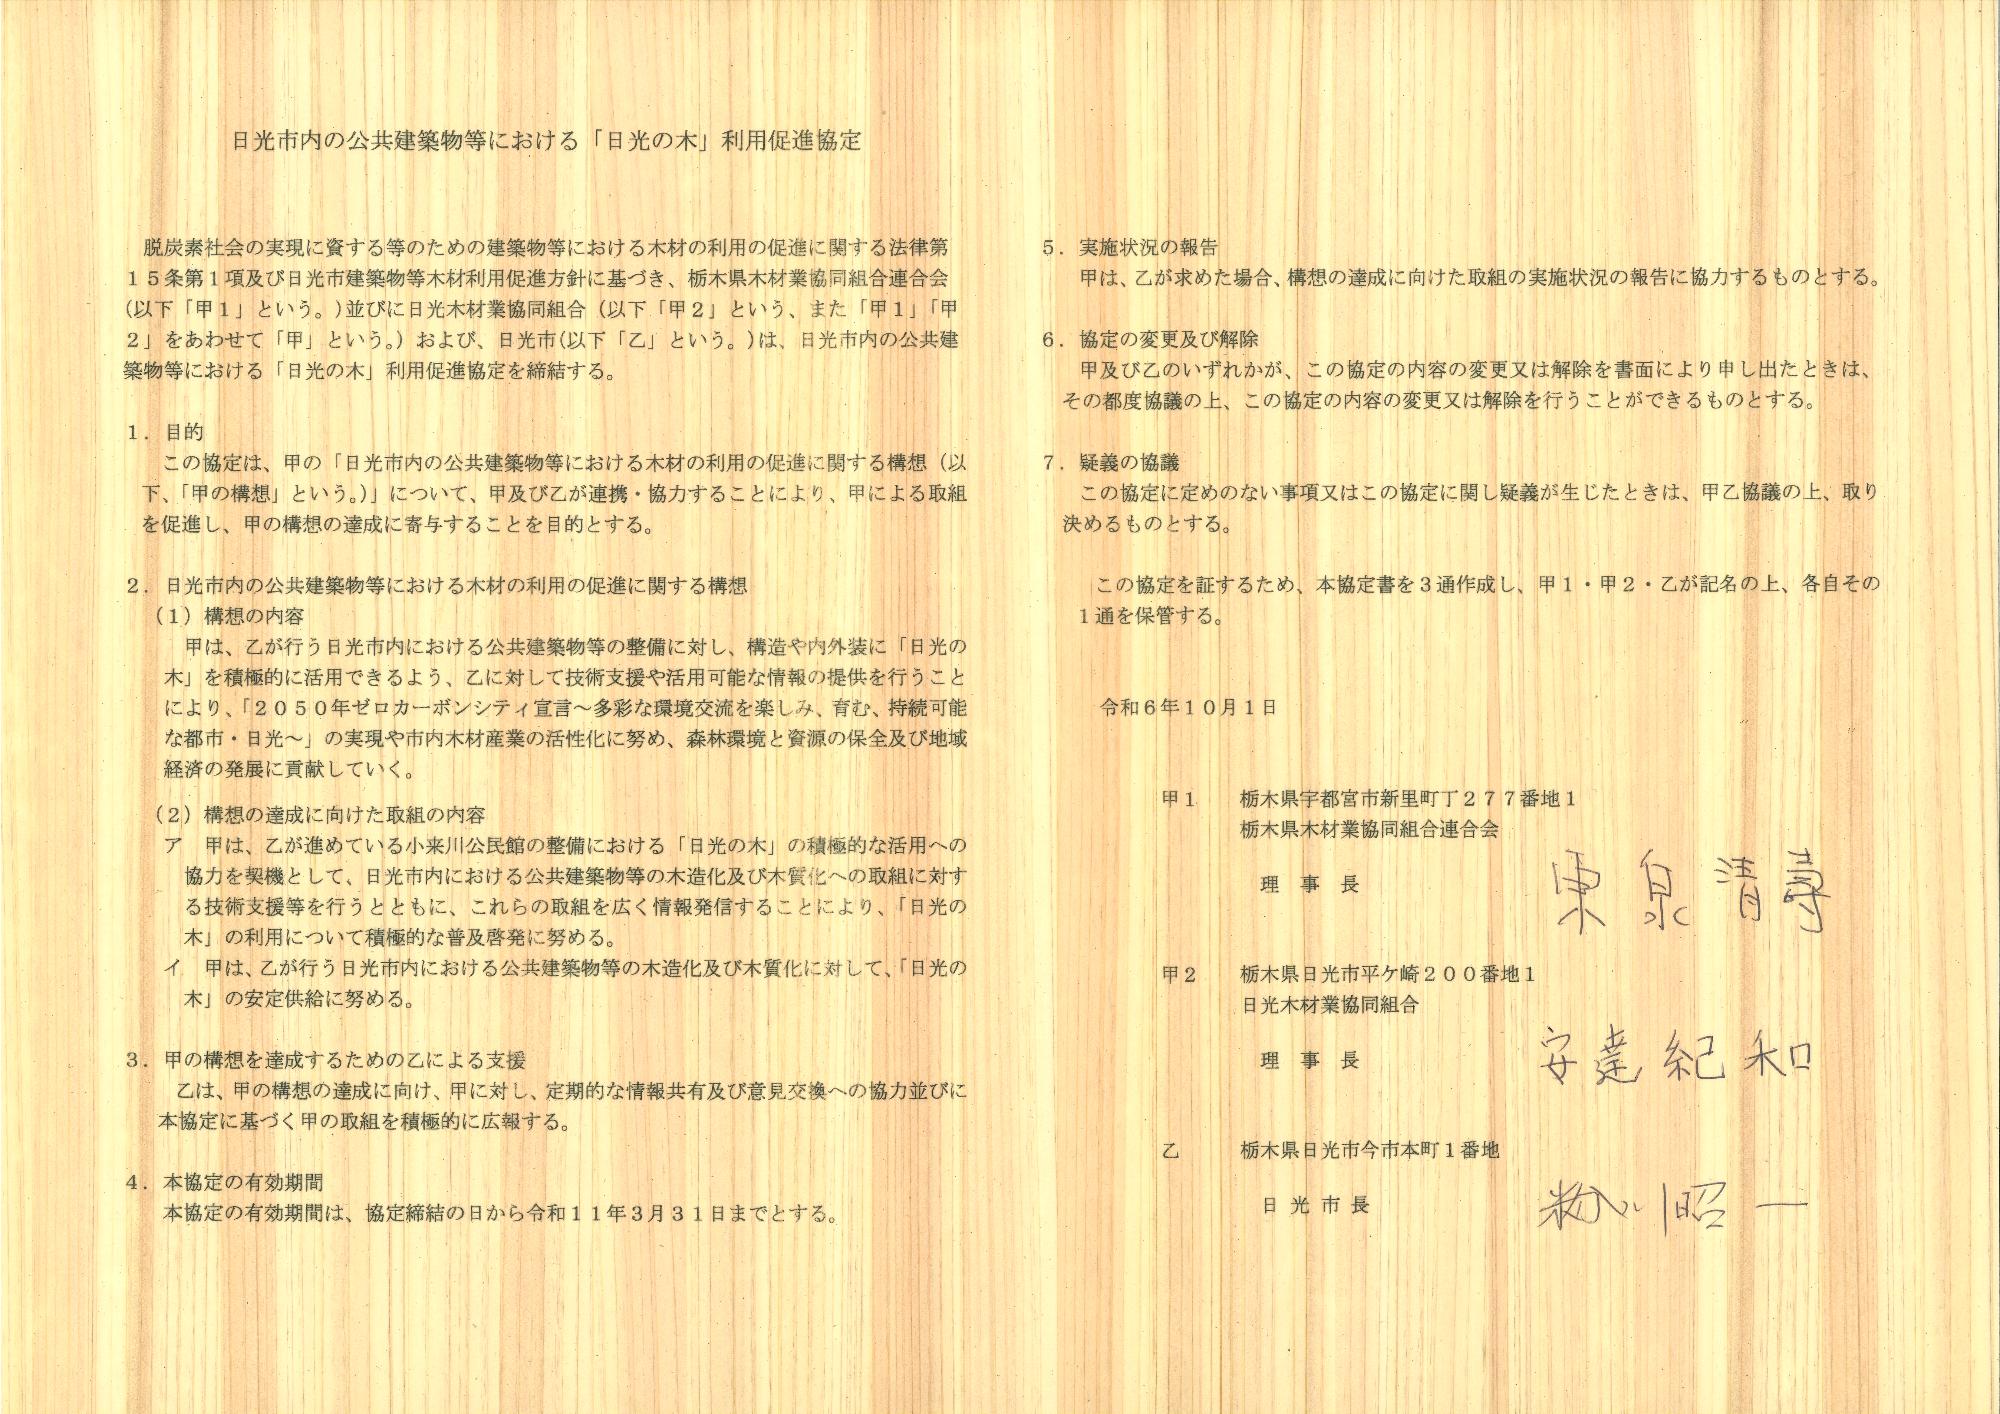 日光市内の公共建築物等における「日光の木」利用促進協定
脱炭素社会の実現に資する等のための建築物等における木材の利用の促進に関する法律第
１５条第１項及び日光市建築物等木材利用促進方針に基づき、栃木県木材業協同組合連合会
(以下「甲１」という。)並びに日光木材業協同組合（以下「甲２」という、また「甲１」「甲
２」をあわせて「甲」という。）および、日光市(以下「乙」という。)は、日光市内の公共建
築物等における「日光の木」利用促進協定を締結する。
１．目的
この協定は、甲の「日光市内の公共建築物等における木材の利用の促進に関する構想（以
下、「甲の構想」という。）」について、甲及び乙が連携・協力することにより、甲による取組
を促進し、甲の構想の達成に寄与することを目的とする。
２．日光市内の公共建築物等における木材の利用の促進に関する構想
（１）構想の内容
甲は、乙が行う日光市内における公共建築物等の整備に対し、構造や内外装に「日光の
木」を積極的に活用できるよう、乙に対して技術支援や活用可能な情報の提供を行うこと
により、「２０５０年ゼロカーボンシティ宣言～多彩な環境交流を楽しみ、育む、持続可能
な都市・日光～」の実現や市内木材産業の活性化に努め、森林環境と資源の保全及び地域
経済の発展に貢献していく。
（２）構想の達成に向けた取組の内容
ア　甲は、乙が進めている小来川公民館の整備における「日光の木」の積極的な活用への
協力を契機として、日光市内における公共建築物等の木造化及び木質化への取組に対す
る技術支援等を行うとともに、これらの取組を広く情報発信することにより、「日光の
木」の利用について積極的な普及啓発に努める。
イ　甲は、乙が行う日光市内における公共建築物等の木造化及び木質化に対して、「日光の
木」の安定供給に努める。
３．甲の構想を達成するための乙による支援
乙は、甲の構想の達成に向け、甲に対し、定期的な情報共有及び意見交換への協力並びに
本協定に基づく甲の取組を積極的に広報する。
４．本協定の有効期間
本協定の有効期間は、協定締結の日から令和１１年３月３１日までとする。
５．実施状況の報告
甲は、乙が求めた場合、構想の達成に向けた取組の実施状況の報告に協力するものとする。
６．協定の変更及び解除
甲及び乙のいずれかが、この協定の内容の変更又は解除を書面により申し出たときは、
その都度協議の上、この協定の内容の変更又は解除を行うことができるものとする。
７．疑義の協議
この協定に定めのない事項又はこの協定に関し疑義が生じたときは、甲乙協議の上、取り
決めるものとする。
この協定を証するため、本協定書を３通作成し、甲１・甲２・乙が記名の上、各自その
１通を保管する。
令和６年１０月１日
甲１　栃木県宇都宮市新里町丁２７７番地１
栃木県木材業協同組合連合会
理　事　長　東泉清壽
甲２　栃木県日光市平ケ崎２００番地１
日光木材業協同組合
理　事　長　安達紀和
乙　栃木県日光市今市本町１番地
日 光 市 長　粉川昭一